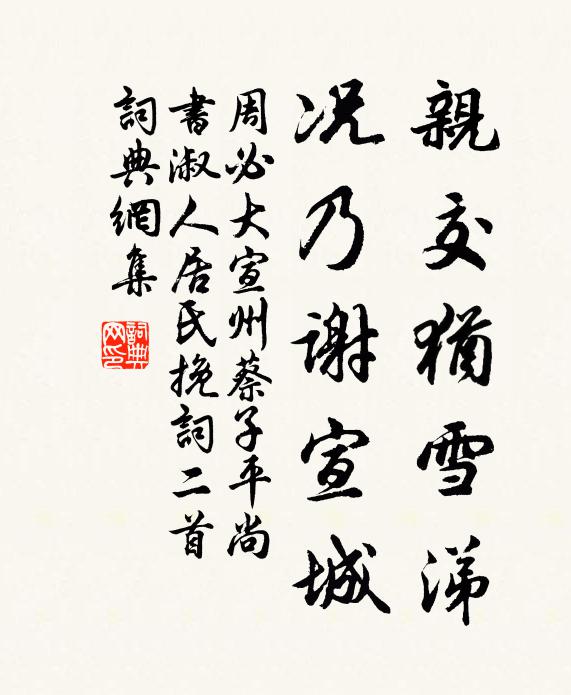 親交猶雪涕
況乃謝宣城
周必大宣州蔡子平尚
書淑人居氏挽詞二首
詞典網集
詞典網印